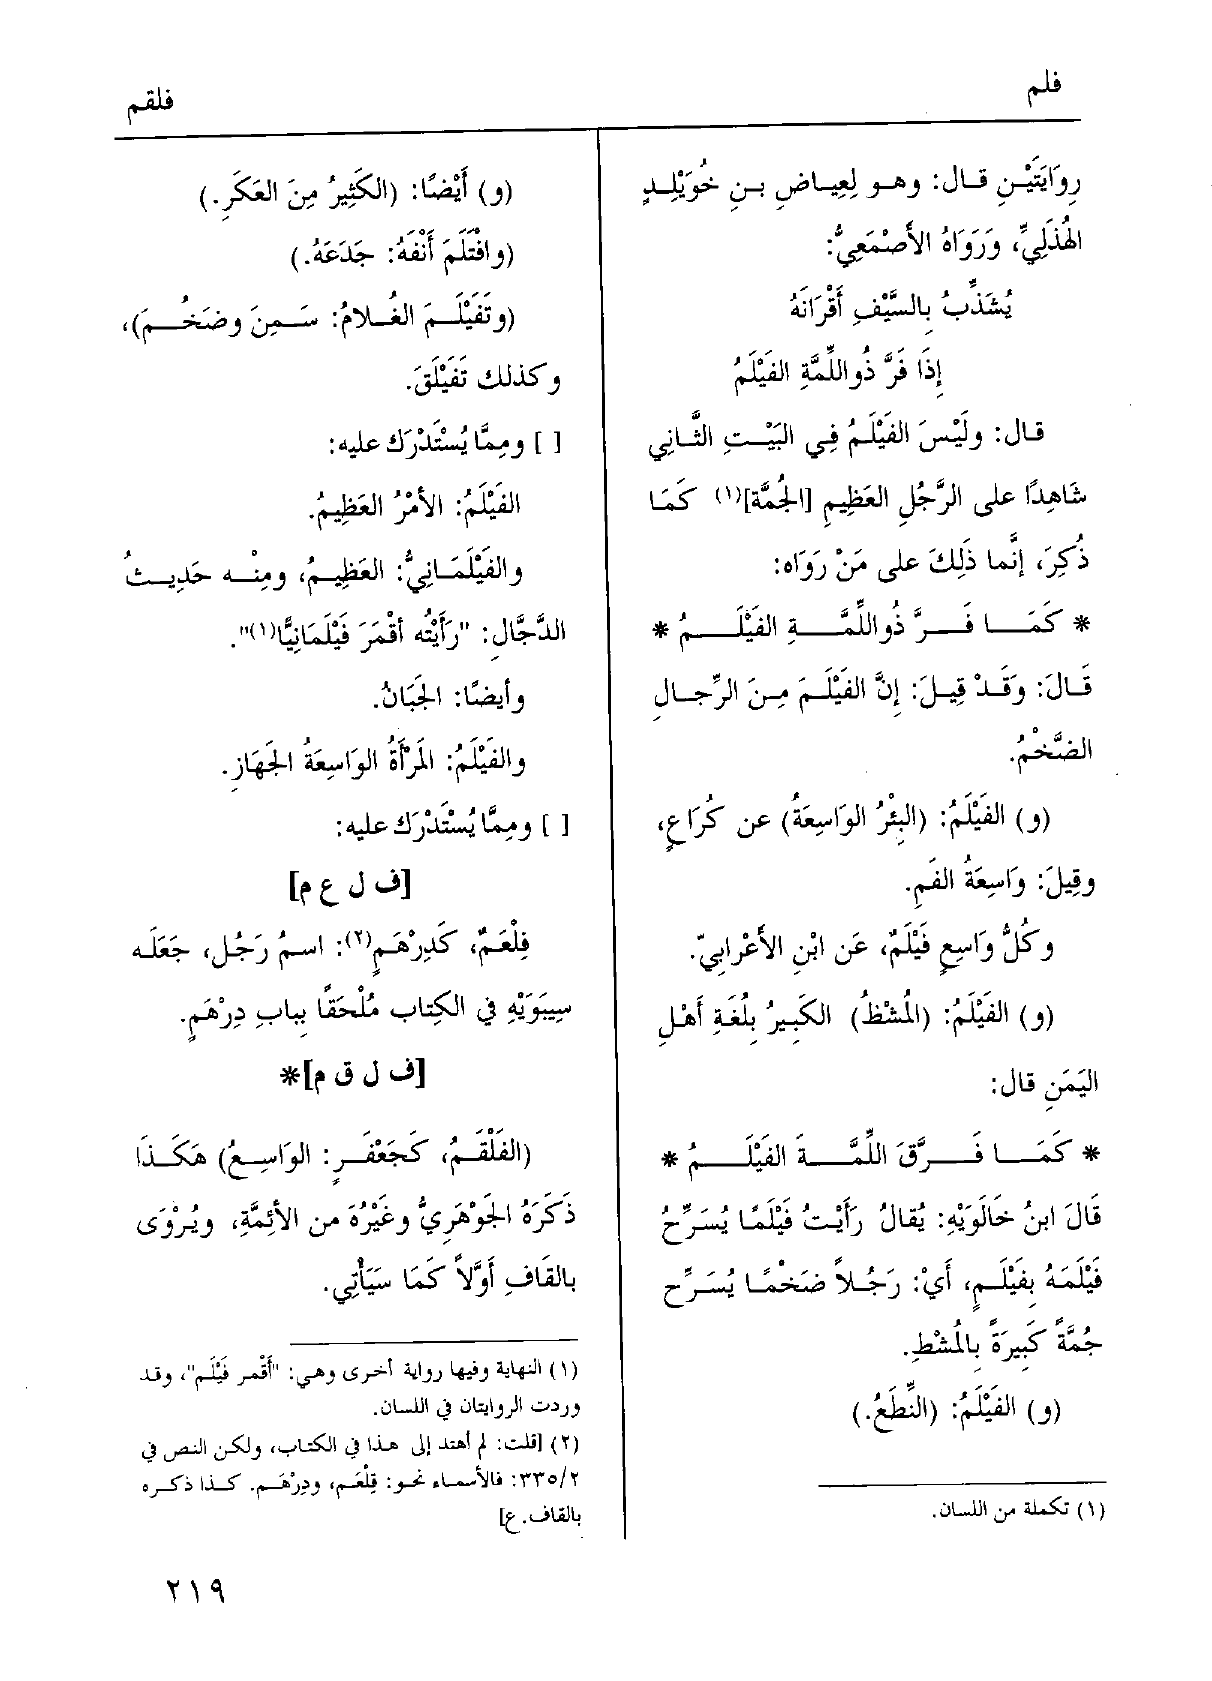 فلم
فلقم
رِوَايَتَيْنِ قال: وهو لِعِياضِ بنِ خُوَيْلِدٍ
الهُذَلِيِّ، وَرَوَاهُ الأَصْمَعِيُّ:
يُشَذِّبُ بِالسَّيْفِ أَقْرَانَهُ
إِذَا فَرَّ ذُو اللِّمَّةِ الفَيْلَمُ
قال: ولَيْسَ الفَيْلَمُ فِي البَيْتِ الثَّانِي
شَاهِدًا على الرَّجُلِ العَظِيمِ [الجُمَّة](١) كَمَا
ذُكِرَ، إنَّما ذَلِكَ على مَنْ رَوَاه:
* كَمَا فَرَّ ذُو اللِّمَّةِ الفَيْلَمُ *
قَالَ: وَقَدْ قِيلَ: إِنَّ الفَيْلَمَ مِنَ الرِّجالِ
الضَّخْمُ.
(و) الفَيْلَمُ: (البِئْرُ الوَاسِعَةُ) عن كُرَاعٍ،
وقِيلَ: وَاسِعَةُ الفَمِ.
وكُلُّ وَاسِعٍ فَيْلَمٌ، عَن ابْنِ الأَعْرابِيّ.
(و) الفَيْلَمُ: (المُشْطُ) الكَبِيرُ بِلُغَةِ أَهْلِ
اليَمَنِ قال:
* كَمَا فَرَّقَ اللِّمَّةَ الفَيْلَمُ *
قَالَ ابنُ خَالَوَيْهِ: يُقالُ رَأَيْتُ فَيْلَمًا يُسَرِّحُ
فَيْلَمَهُ بِفَيْلَمٍ، أَيْ: رَجُلاً ضَخْمًا يُسَرِّح
جُمَّةً كَبِيرَةً بِالمُشْطِ.
(و) الفَيْلَمُ: (النِّطَعُ.)
(١) تكملة من اللسان.
(و) أَيْضًا: (الكَثِيرُ مِنَ العَكَرِ.)
(وافْتَلَمَ أَنْفَهُ: جَدَعَهُ.)
(وتَفَيْلَمَ الغُلامُ: سَمِنَ وضَخُمَ)،
وكذلك تَفَيْلَقَ.
[ ] ومِمَّا يُسْتَدْرَك عليه:
الفَيْلَمُ: الأَمْرُ العَظِيمُ.
والفَيْلَمَانِيُّ: العَظِيمُ، ومِنْه حَدِيثُ
الدَّجَّالِ: "رَأَيْتُه أَقْمَرَ فَيْلَمَانِيًّا(١)".
وأيضًا: الجَبَانُ.
والفَيْلَمُ: المَرْأَةُ الوَاسِعَةُ الجَهَازِ.
[ ] ومِمَّا يُسْتَدْرَك عليه:
[ف ل ع م]
فِلْعَمٌ، كَدِرْهَمٍ(٢): اسمُ رَجُل، جَعَلَه
سِيبَوَيْهِ في الكِتاب مُلْحَقًا بِبابِ دِرْهَمٍ.
[ف ل ق م]*
(الفَلْقَمُ، كَجَعْفَرٍ: الوَاسِعُ) هَكَذَا
ذَكَرَهُ الجَوْهَرِيُّ وغَيْرُهُ من الأَئِمَّةِ، ويُرْوَى
بالقَافِ أَوَّلاً كَمَا سَيَأْتِي.
(١) النهاية وفيها رواية أخرى وهي: "أَقْمر فَيْلَم"، وقد
وردت الروايتان في اللسان.
(٢) [قلت: لم أهتد إلى هذا في الكتاب، ولكن النص في
٣٣٥/٢: فالأسماء نحو: قِلْعَم، ودِرْهَم. كذا ذكره
بالقاف. ع]
٢١٩